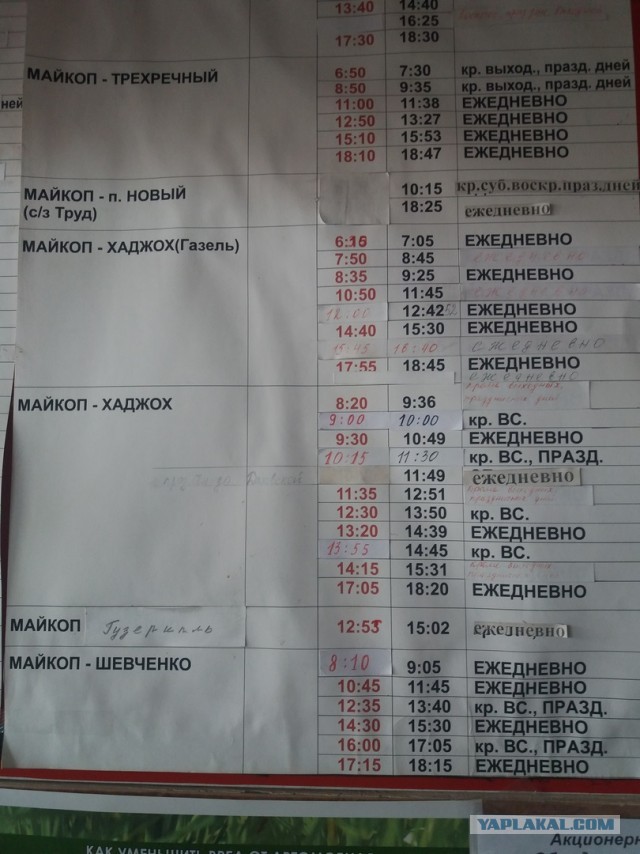 13:40 14:40
16:25
17:30 18:30
МАЙКОП - ТРЕХРЕЧНЫЙ 6:50 7:30 кр. выход., празд. дней
ней 8:50 9:35 кр. выход., празд. дней
11:00 11:38 ЕЖЕДНЕВНО
12:50 13:27 ЕЖЕДНЕВНО
15:10 15:53 ЕЖЕДНЕВНО
18:10 18:47 ЕЖЕДНЕВНО
МАЙКОП - п. НОВЫЙ 10:15 кр.суб.воскр.праз.дней
(с/з Труд) 18:25 ежедневно
МАЙКОП - ХАДЖОХ(Газель) 6:15 7:05 ЕЖЕДНЕВНО
7:50 8:45 ежедневно
8:35 9:25 ЕЖЕДНЕВНО
10:50 11:45 ежедневно
12:00 12:42 ЕЖЕДНЕВНО
14:40 15:30 ЕЖЕДНЕВНО
15:45 16:40 ежедневно
17:55 18:45 ЕЖЕДНЕВНО
ежедневно
МАЙКОП - ХАДЖОХ 8:20 9:36
9:00 10:00 кр. ВС.
9:30 10:49 ЕЖЕДНЕВНО
10:15 11:30 кр. ВС., ПРАЗД.
11:49 ежедневно
11:35 12:51
12:30 13:50 кр. ВС.
13:20 14:39 ЕЖЕДНЕВНО
13:55 14:45 кр. ВС.
14:15 15:31
17:05 18:20 ЕЖЕДНЕВНО
МАЙКОП Гузерипль 12:55 15:02 ежедневно
МАЙКОП - ШЕВЧЕНКО 8:10 9:05 ЕЖЕДНЕВНО
10:45 11:45 ЕЖЕДНЕВНО
12:35 13:40 кр. ВС., ПРАЗД.
14:30 15:30 ЕЖЕДНЕВНО
16:00 17:05 кр. ВС., ПРАЗД.
17:15 18:15 ЕЖЕДНЕВНО
YAPLAKAL.COM
Акционерн
КАК УМЕНЬШИТЬ ВРЕД ОТ